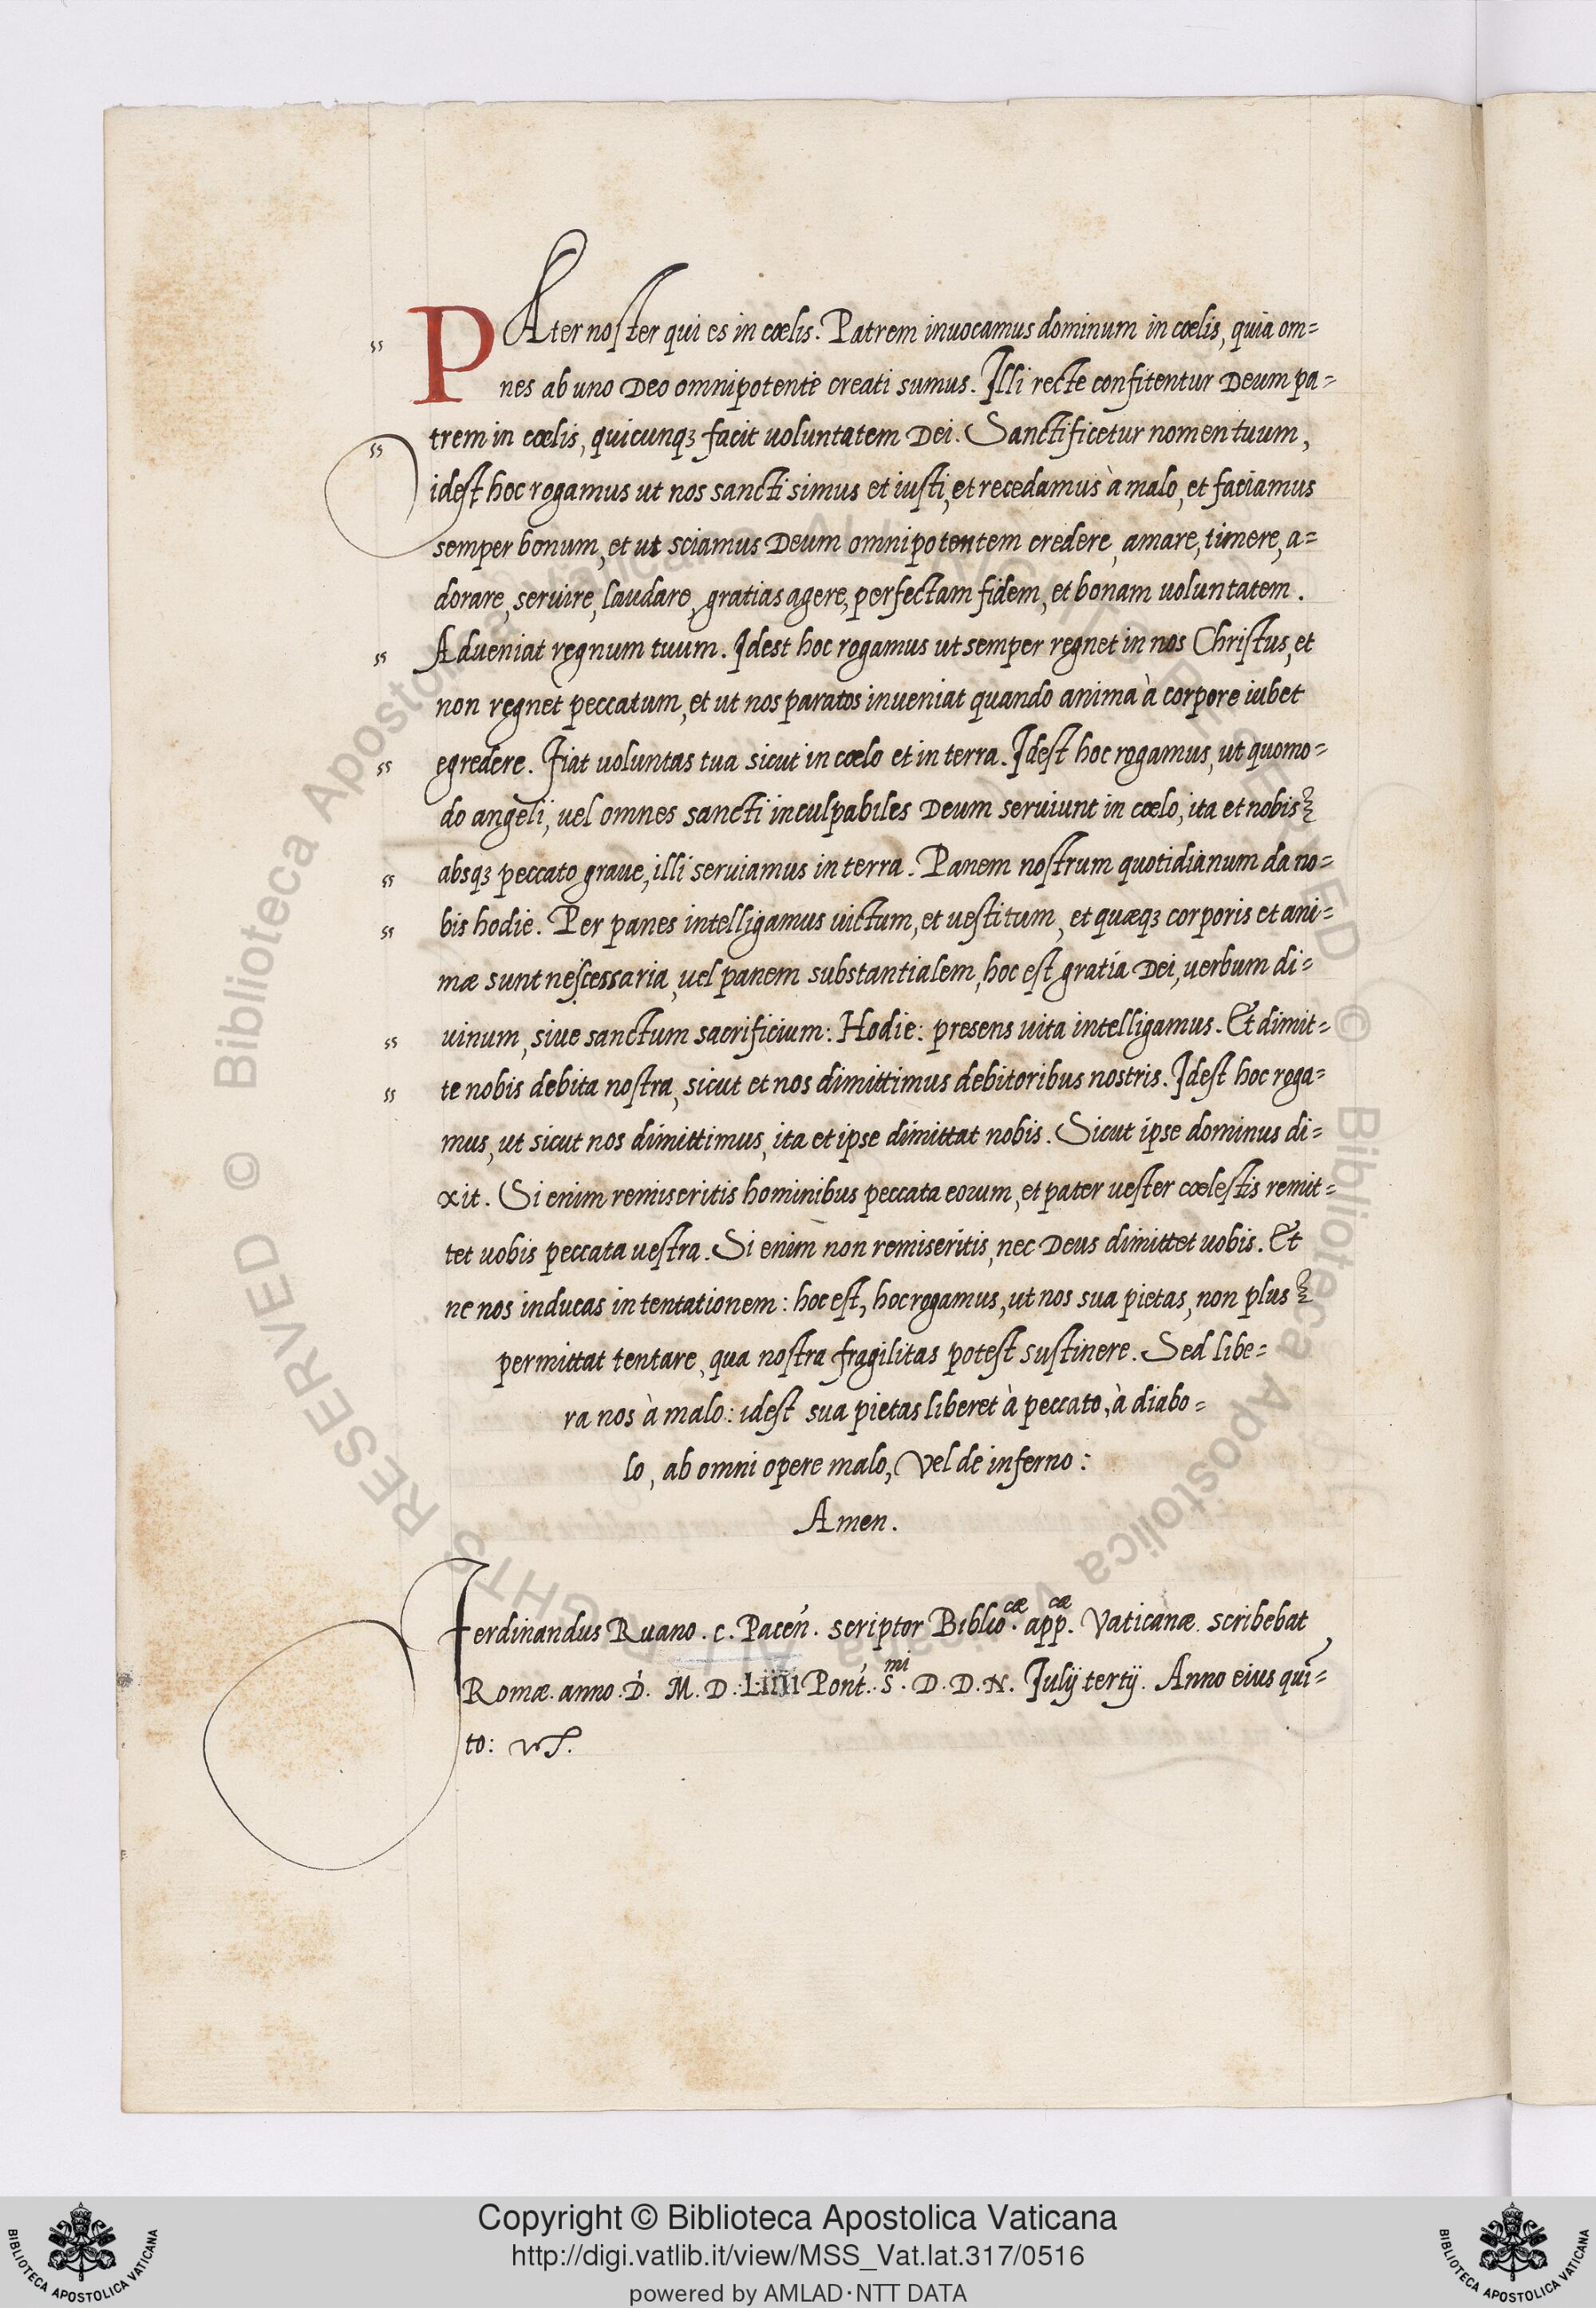 PAter noster qui es in cœlis. Patrem invocamus dominum in cœlis, quia om=
nes ab uno Deo omnipotente creati sumus. Illi recte confitentur Deum pa=
trem in cœlis, quicunqꝫ facit voluntatem Dei. Sanctificetur nomen tuum,
idest hoc rogamus ut nos sancti simus et iusti, et recedamus à malo, et faciamus
semper bonum, et ut sciamus Deum omnipotentem credere, amare, timere, a=
dorare, servire, laudare, gratias agere, perfectam fidem, et bonam voluntatem.
Adveniat regnum tuum. Idest hoc rogamus ut semper regnet in nos Christus, et
non regnet peccatum, et ut nos paratos inveniat quando anima à corpore iubet
egredere. Fiat voluntas tua sicut in cœlo et in terra. Idest hoc rogamus, ut quomo=
do angeli, vel omnes sancti inculpabiles Deum serviunt in cœlo, ita et nobis
absqꝫ peccato grave, illi serviamus in terra. Panem nostrum quotidianum da no=
bis hodie. Per panes intelligamus victum, et vestitum, et quæqꝫ corporis et ani=
mæ sunt nescessaria, vel panem substantialem, hoc est gratia Dei, verbum di=
vinum, sive sanctum sacrificium: Hodie: presens vita intelligamus. Et dimit=
te nobis debita nostra, sicut et nos dimittimus debitoribus nostris. Idest hoc roga=
mus, ut sicut nos dimittimus, ita et ipse dimittat nobis. Sicut ipse dominus di=
xit. Si enim remiseritis hominibus peccata eorum, et pater vester cœlestis remit=
tet vobis peccata vestra. Si enim non remiseritis, nec Deus dimittet vobis. Et
ne nos inducas in tentationem: hoc est, hoc rogamus, ut nos sua pietas, non plus
permittat tentare, qua nostra fragilitas potest sustinere. Sed libe=
ra nos à malo: idest sua pietas liberet à peccato, à diabo=
lo, ab omni opere malo, Vel de inferno:
Amen.
Ferdinandus Ruano. c. Pacen̄. scriptor Biblio.cæ app.cæ Vaticanæ scribebat
Romæ. anno. D. M. D. LIIII Pont. S.mi D. D. N. Iulij tertij. Anno eius qui=
to:
© Biblioteca Apostolica Vaticana ALL RIGHTS RESERVED © Biblioteca Apostolica Vaticana ALL RIGHTS RESERVED
Copyright © Biblioteca Apostolica Vaticana
http://digi.vatlib.it/view/MSS_Vat.lat.317/0516
powered by AMLAD·NTT DATA
BIBLIOTECA APOSTOLICA VATICANA
BIBLIOTECA APOSTOLICA VATICANA